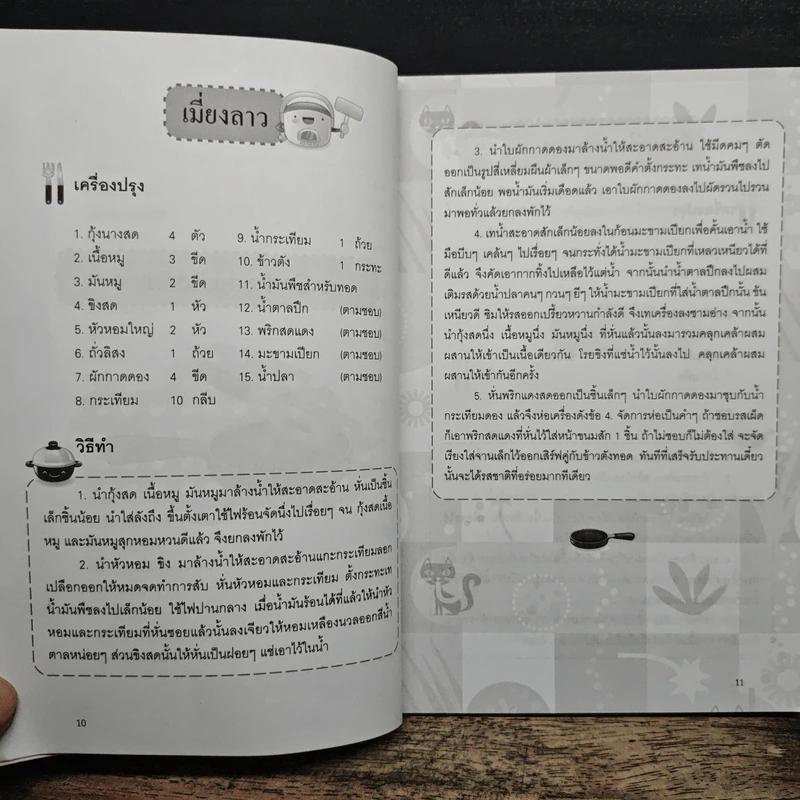 เมี่ยงลาว
เครื่องปรุง
1. กุ้งนางสด 4 ตัว
2. เนื้อหมู 3 ขีด
3. มันหมู 2 ขีด
4. ขิงสด 1 หัว
5. หัวหอมใหญ่ 2 หัว
6. ถั่วลิสง 1 ถ้วย
7. ผักกาดดอง 4 ขีด
8. กระเทียม 10 กลีบ
9. น้ำกระเทียม 1 ถ้วย
10. ข้าวตัง 1 กระทะ
11. น้ำมันพืชสำหรับทอด
12. น้ำตาลปึก (ตามชอบ)
13. พริกสดแดง (ตามชอบ)
14. มะขามเปียก (ตามชอบ)
15. น้ำปลา (ตามชอบ)
วิธีทำ
1. นำกุ้งสด เนื้อหมู มันหมูมาล้างน้ำให้สะอาดสะอ้าน หั่นเป็นชิ้น
เล็กชิ้นน้อย นำใส่ลังถึง ขึ้นตั้งเตาใช้ไฟร้อนจัดนึ่งไปเรื่อยๆ จน กุ้งสดเนื้อ
หมู และมันหมูสุกหอมหวนดีแล้ว จึงยกลงพักไว้
2. นำหัวหอม ขิง มาล้างน้ำให้สะอาดสะอ้านแกะกระเทียมลอก
เปลือกออกให้หมดจดทำการสับ หั่นหัวหอมและกระเทียม ตั้งกระทะเท
น้ำมันพืชลงไปเล็กน้อย ใช้ไฟปานกลาง เมื่อน้ำมันร้อนได้ที่แล้วให้นำหัว
หอมและกระเทียมที่หั่นซอยแล้วนั้นลงเจียวให้หอมเหลืองนวลออกสีน้ำ
ตาลหน่อยๆ ส่วนขิงสดนั้นให้หั่นเป็นฝอยๆ แช่เอาไว้ในน้ำ
10
3. นำใบผักกาดดองมาล้างน้ำให้สะอาดสะอ้าน ใช้มีดคมๆ ตัด
ออกเป็นรูปสี่เหลี่ยมผืนผ้าเล็กๆ ขนาดพอดีคำตั้งกระทะ เทน้ำมันพืชลงไป
สักเล็กน้อย พอน้ำมันเริ่มเดือดแล้ว เอาใบผักกาดดองลงไปผัดรวนไปรวน
มาพอทั่วแล้วยกลงพักไว้
4. เทน้ำสะอาดสักเล็กน้อยลงในก้อนมะขามเปียกเพื่อคั้นเอาน้ำ ใช้
มือบีบๆ เคล้นๆ ไปเรื่อยๆ จนกระทั่งได้น้ำมะขามเปียกที่เหลวเหนียวได้ที่
ดีแล้ว จึงคัดเอากากทิ้งไปเหลือไว้แต่น้ำ จากนั้นนำน้ำตาลปึกลงไปผสม
เติมรสด้วยน้ำปลาคนๆ กวนๆ ยีๆ ให้น้ำมะขามเปียกที่ใส่น้ำตาลปึกนั้น ข้น
เหนียวดี ชิมให้รสออกเปรี้ยวหวานกำลังดี จึงเทเครื่องลงชามอ่าง จากนั้น
นำกุ้งสดนึ่ง เนื้อหมูนึ่ง มันหมูนึ่ง ที่หั่นแล้วนั้นลงมารวมคลุกเคล้าผสม
ผสานให้เข้าเป็นเนื้อเดียวกัน โรยขิงที่แช่น้ำไว้นั้นลงไป คลุกเคล้าผสม
ผสานให้เข้ากันอีกครั้ง
5. หั่นพริกแดงสดออกเป็นชิ้นเล็กๆ นำใบผักกาดดองมาชุบกับน้ำ
กระเทียมดอง แล้วจึงห่อเครื่องดังข้อ 4. จัดการห่อเป็นคำๆ ถ้าชอบรสเผ็ด
ก็เอาพริกสดแดงที่หั่นไว้ใส่หน้าขนมสัก 1 ชิ้น ถ้าไม่ชอบก็ไม่ต้องใส่ จะจัด
เรียงใส่จานเล็กไว้ออกเสิร์ฟคู่กับข้าวตังทอด ทันทีที่เสร็จรับประทานเดี๋ยว
นั้นจะได้รสชาติที่อร่อยมากทีเดียว
11